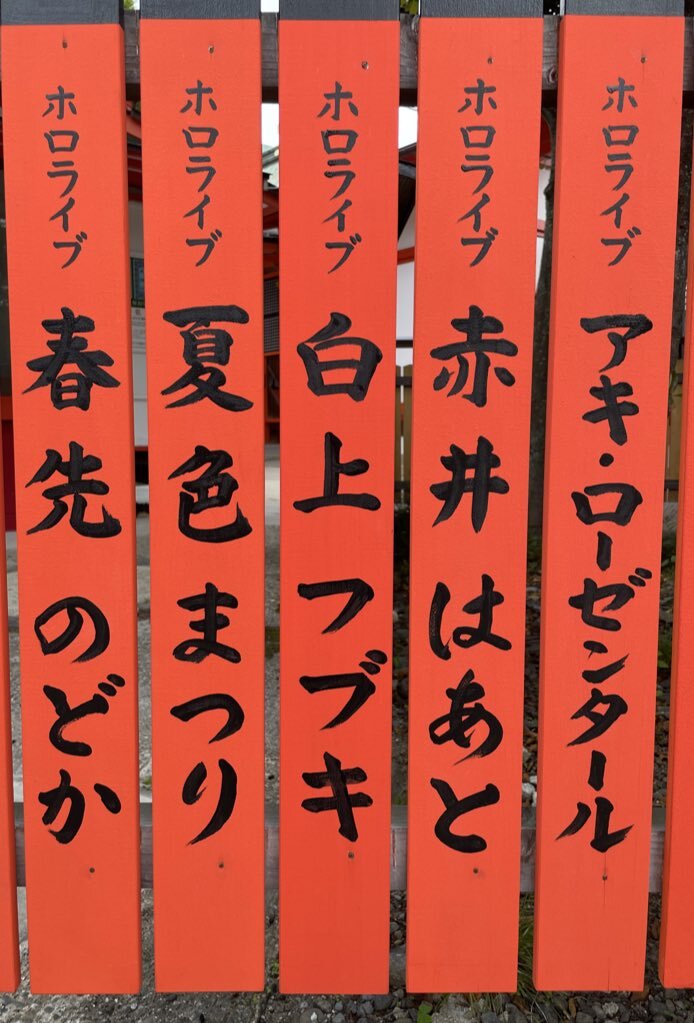 ホロライブ アキ・ローゼンタール
ホロライブ 赤井はあと
ホロライブ 白上フブキ
ホロライブ 夏色まつり
ホロライブ 春先のどか